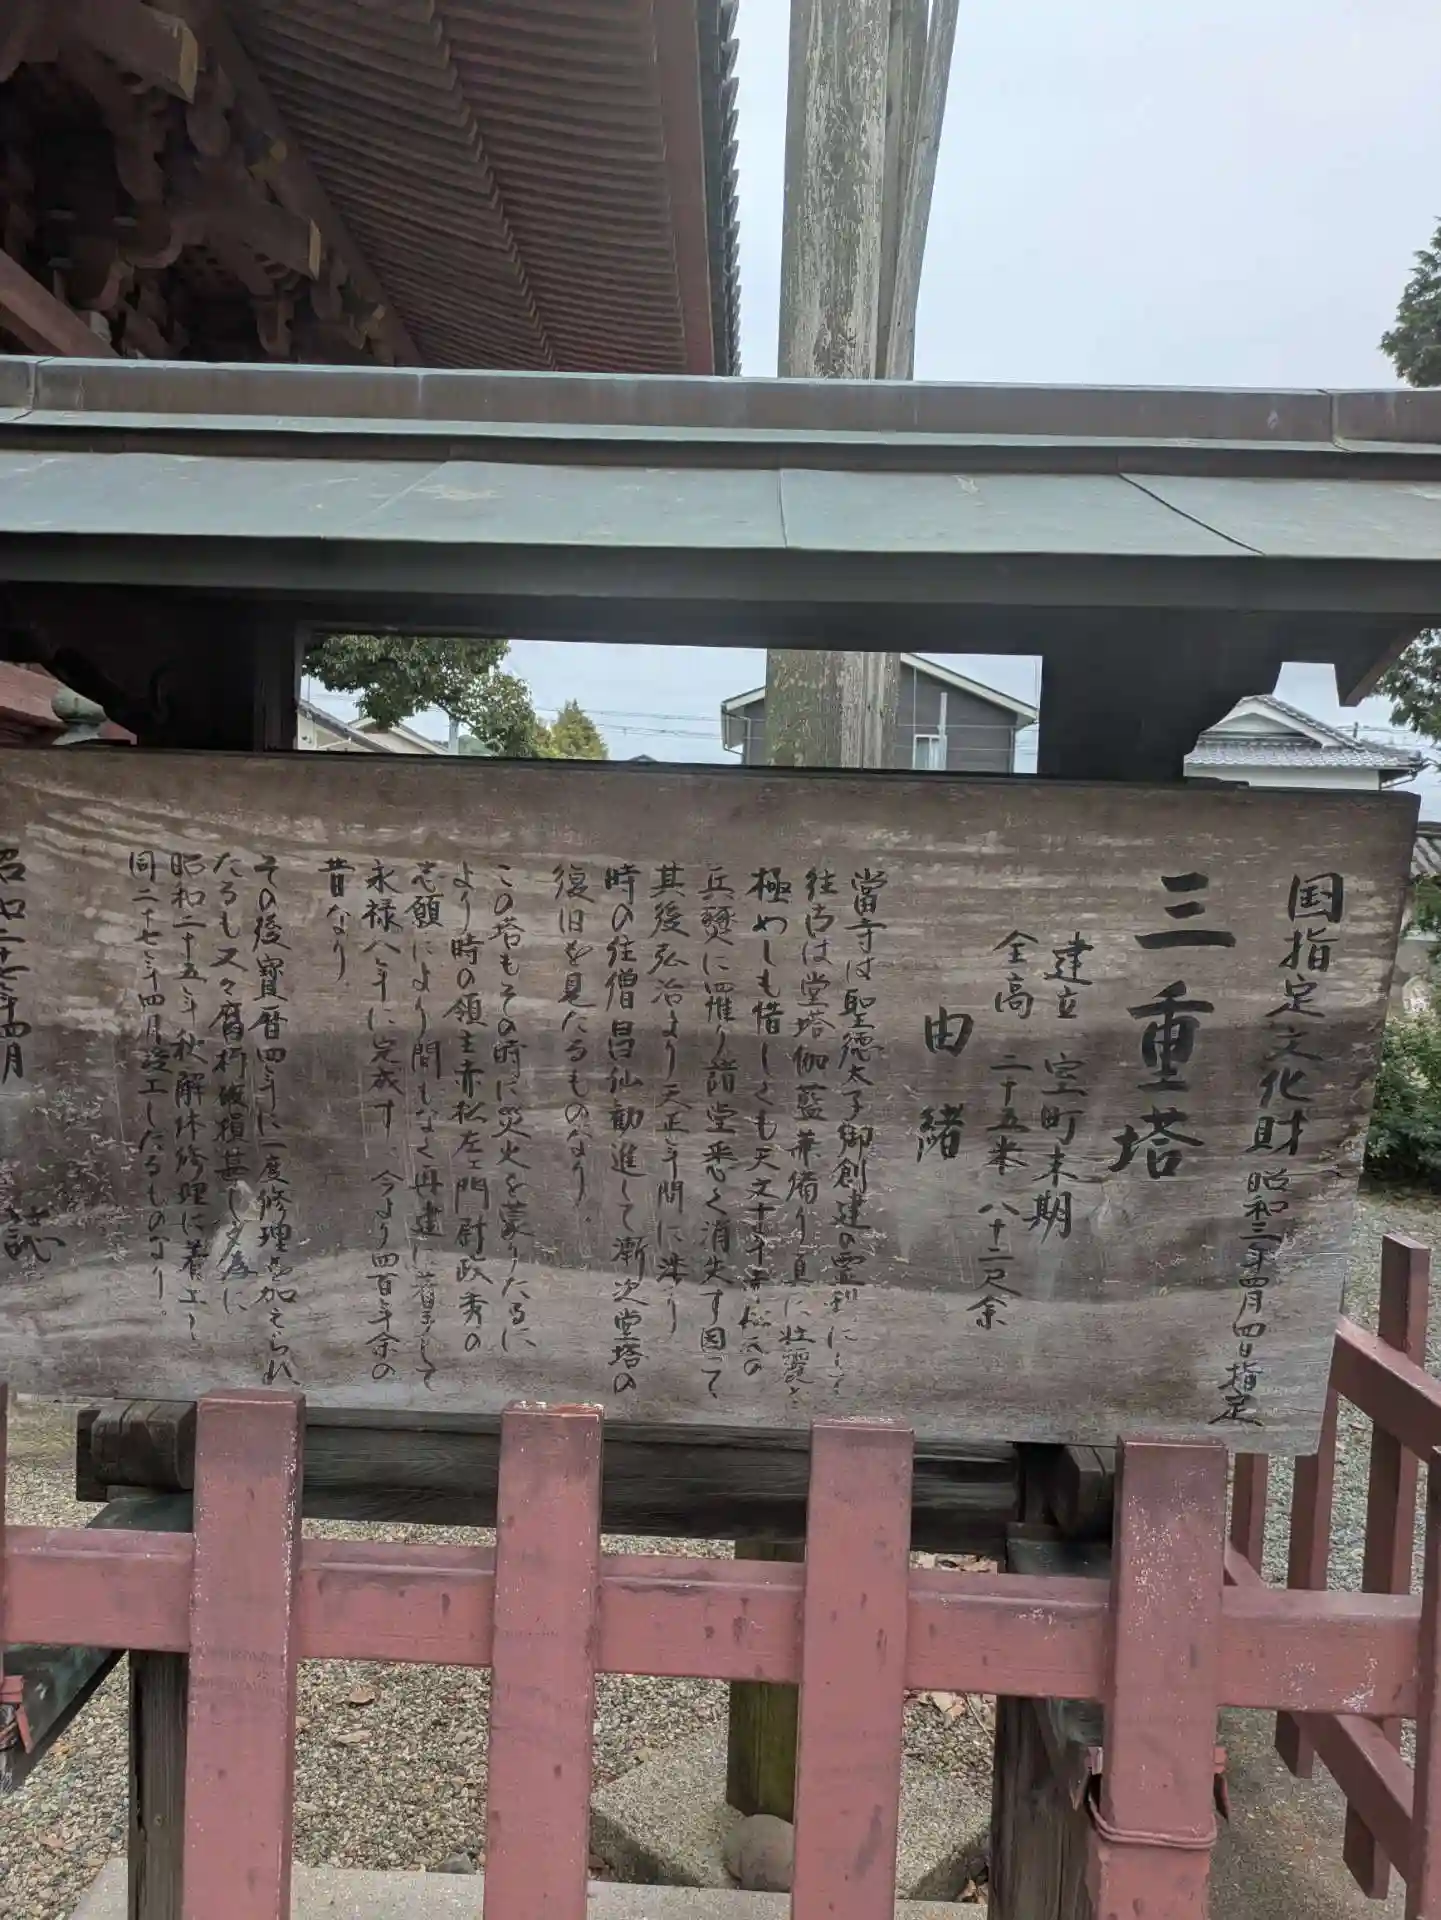 国指定文化財 昭和三年四月四日指定
三重塔
建立 室町末期
全高 二十五米 八十二尺余
由緒
當寺は聖徳太子御創建の霊刹にして
往古は堂塔伽藍兼備り真に壮麗を
極めしも惜しくも天文十年
兵燹に罹り諸堂悉く消失す因て
其後弘治より天正年間に渉り
時の住僧昌仙勧進して漸次堂塔の
復旧を見たるものなり、
この塔もその時に災火を蒙りたるに
より時の領主赤松左ェ門尉政秀の
志願により間もなく再建に着手して
永禄八年に完成す、今より四百年余の
昔なり、
その後寳暦四年に一度修理を加えられ
たるも又々腐朽破損甚しき為に
昭和二十五年秋解体修理に着工し
同二十七年四月竣工したるものなり。
昭和二十七年四月 誌